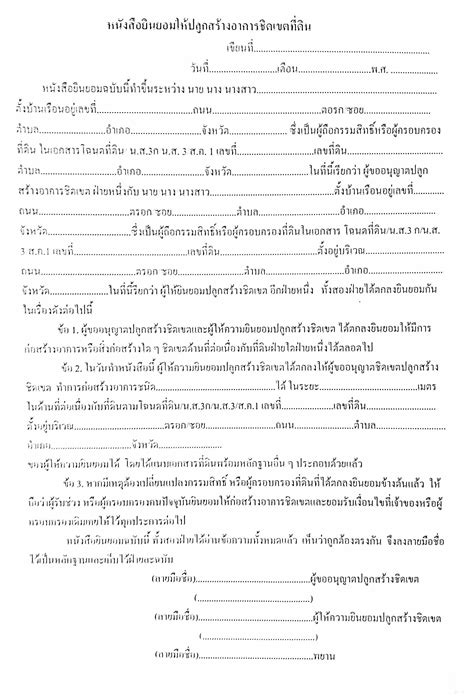 หนังสือยินยอมให้ปลูกสร้างอาคารชิดเขตที่ดิน
เขียนที่..........................................................
วันที่....................เดือน........................พ.ศ. .................
หนังสือยินยอมฉบับนี้ทำขึ้นระหว่าง นาย นาง นางสาว......................................................
ตั้งบ้านเรือนอยู่เลขที่................................ถนน..............................ตอรก ซอย....................
ตำบล....................อำเภอ........................จังหวัด........................ ซึ่งเป็นผู้ถือกรรมสิทธิ์หรือผู้ครอบครอง
ที่ดิน ในเอกสารโฉนดที่ดิน/ น.ส.3ก น.ส. 3 ส.ค. 1 เลขที่........................เลขที่ดิน........................
ตำบล........................อำเภอ........................จังหวัด........................ในที่นี้เรียกว่า ผู้ขออนุญาตปลูก
สร้างอาคารชิดเขต ฝ่ายหนึ่งกับ นาย นาง นางสาว................................ตั้งบ้านเรือนอยู่เลขที่............
ถนน........................ตรอก ซอย........................ตำบล........................อำเภอ........................
จังหวัด........................ซึ่งเป็นผู้ถือกรรมสิทธิ์หรือผู้ครอบครองที่ดินในเอกสาร โฉนดที่ดิน/น.ส.3 ก/น.ส.
3 ส.ค.1 เลขที่................................เลขที่ดิน................................ตั้งอยู่บริเวณ....................
ถนน........................ตรอก ซอย........................ตำบล........................อำเภอ........................
จังหวัด....................ในที่นี้เรียกว่า ผู้ให้ยินยอมปลูกสร้างชิดเขต อีกฝ่ายหนึ่ง ทั้งสองฝ่ายได้ตกลงยินยอมกัน
ในเรื่องดังต่อไปนี้
ข้อ 1. ผู้ขออนุญาตปลูกสร้างชิดเขตและผู้ให้ความยินยอมปลูกสร้างชิดเขต ได้ตกลงยินยอมให้มีการ
ก่อสร้างอาคารหรือสิ่งก่อสร้างใด ๆ ชิดเขตด้านที่ต่อเนื่องกับที่ดินฝ่ายใดฝ่ายหนึ่งได้ตลอดไป
ข้อ 2. ในวันทำหนังสือนี้ ผู้ให้ความยินยอมปลูกสร้างชิดเขตได้ตกลงให้ผู้ขออนุญาตชิดเขตปลูกสร้าง
ชิดเขต ทำการก่อสร้างอาคารชนิด................................ได้ ในระยะ................................เมตร
ในด้านที่ต่อเนื่องกับที่ดินตามโฉนดที่ดิน/น.ส.3ก/น.ส.3/ส.ค.1 เลขที่....................เลขที่ดิน....................
ตั้งอยู่บริเวณ........................ตรอก/ซอย........................ถนน....................ตำบล....................
อำเภอ........................จังหวัด........................
ของผู้ให้ความยินยอมได้ โดยได้แนบเอกสารที่ดินพร้อมหลักฐานอื่น ๆ ประกอบด้วยแล้ว
ข้อ 3. หากมีเหตุต้องเปลี่ยนแปลงกรรมสิทธิ์ หรือผู้ครอบครองที่ดินที่ได้ตกลงยินยอมข้างต้นแล้ว ให้
ถือว่าผู้รับช่วง หรือผู้ครอบครองคนปัจจุบันยินยอมให้ก่อสร้างอาคารชิดเขตและยอมรับเงื่อนไขที่เจ้าของหรือผู้
ครอบครองเดิมเคยให้ไว้ทุกประการต่อไป
หนังสือยินยอมฉบับนี้ ทั้งสองฝ่ายได้อ่านข้อความทั้งหมดแล้ว เห็นว่าถูกต้องตรงกัน จึงลงลายมือชื่อ
ไว้เป็นหลักฐานและเก็บไว้ฝ่ายละฉบับ
(ลายมือชื่อ)................................ผู้ขออนุญาตปลูกสร้างชิดเขต
(................................................)
(ลายมือชื่อ)................................ผู้ให้ความยินยอมปลูกสร้างชิดเขต
(................................................)
(ลายมือชื่อ)................................พยาน